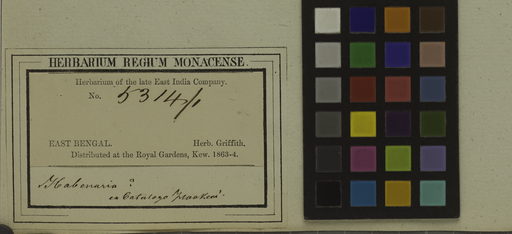 HERBARIUM REGIUM MONACENSE.
Herbarium of the late East India Company.
No. 5314/1
EAST BENGAL. Herb. Griffith.
Distributed at the Royal Gardens, Kew. 1863-4.
Habenaria?
ex Catalogo